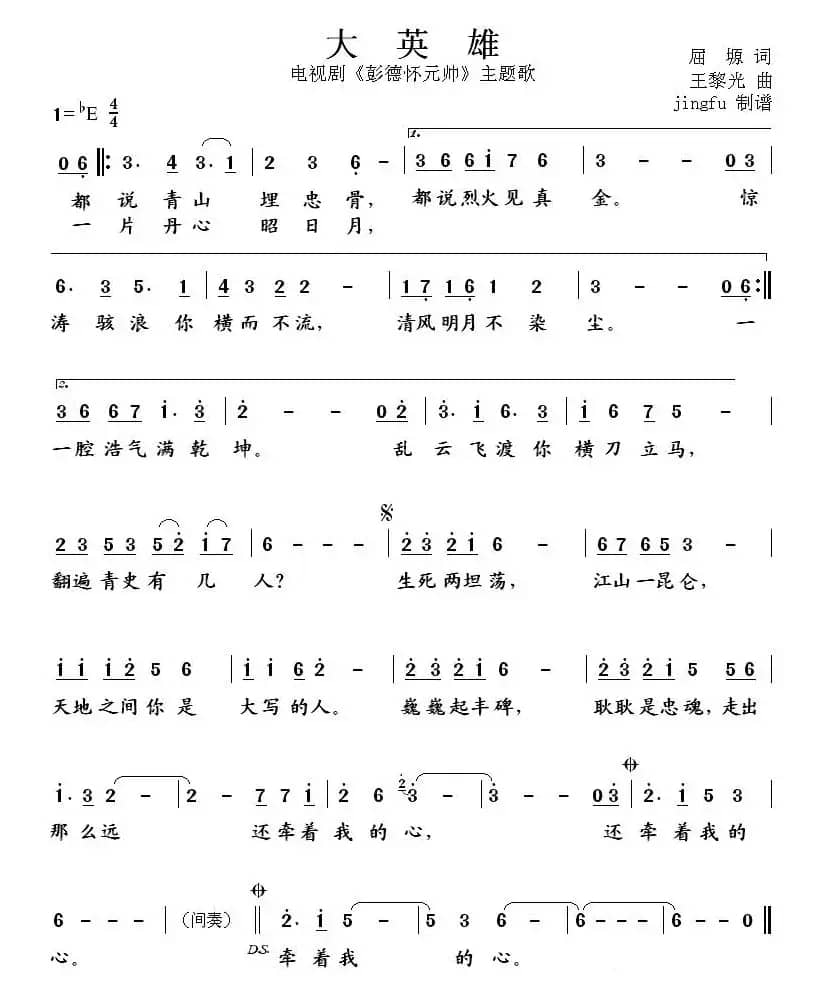 大 英 雄
电视剧《彭德怀元帅》主题歌
屈 塬 词
王黎光 曲
jingfu 制谱
1=♭E 4/4
1.
0 6 3· 4 3·1 2 3 6 - 3 6 6 i 7 6 3 - - 0 3
都 说 青山 埋 忠 骨, 都说烈火见真 金。 惊
一 片 丹心 昭 日 月,
6· 3 5· 1 4 3 2 2 - 1 7 1 6 1 2 3 - - 0 6
涛 骇 浪 你 横 而 不 流, 清风明月不 染 尘。 一
2.
3 6 6 7 i· 3 2 - - 0 2 3· i 6· 3 i 6 7 5 -
一腔浩气满 乾 坤。 乱 云 飞 渡 你 横 刀 立 马,
2 3 5 3 5 2 i 7 6 - - - 2 3 2 i 6 - 6 7 6 5 3 -
翻遍 青史 有 几 人? 生死两坦荡, 江山一昆仑,
i i i 2 5 6 i i 6 2 - 2 3 2 i 6 - 2 3 i 5 5 6
天地之间你 是 大写 的人。 巍巍起丰碑, 耿耿是忠魂,走出
i· 3 2 - 2 - 7 7 i 2 6 2 3 - 3 - - 0 3 2· i 5 3
那 么 远 还牵着 我 的 心, 还 牵 着 我 的
6 - - - (间奏) 2· i 5 - 5 3 6 - 6 - - - 6 - - 0
心。 D.S. 牵 着 我 的 心。